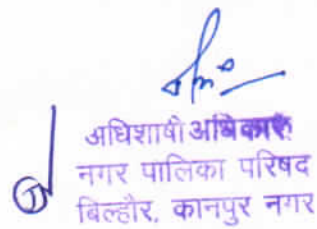 अधिशाषी अधिकारी
नगर पालिका परिषद
बिल्हौर, कानपुर नगर